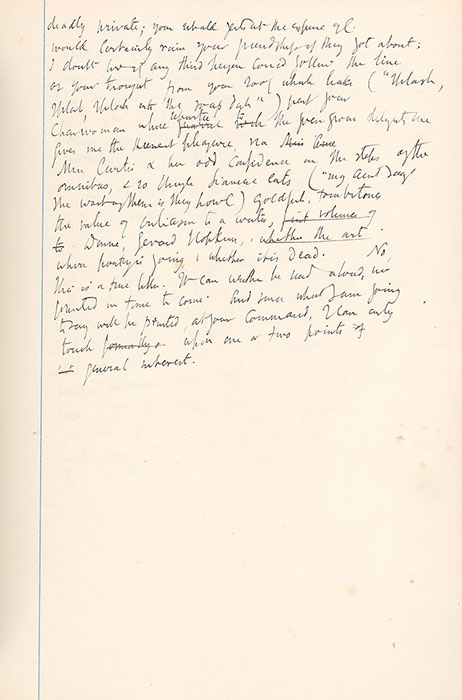 deadly private; your at the expense of
would certainly ruin your friendships if they got about;
I doubt if any third person could follow the line
of your thought from your roof which leaks ("Splash,
splash, splash into the soap dish") past your
Charwoman whose repartee to the green grocer delights me
gives me the keenest pleasure, via
Miss Curtis & her odd confidence on the steps of the
omnibus, to Siamese cats ("my Aunt says
them if they howl") goldfish, tombstones
the value of criticism to a writer, first volume of
to Donne, Gerard Hopkins, whether the art
where poetry is going, & whether it is dead. No,
this is a true letter. It can neither be read aloud, nor
printed in time to come. And since what I am going
to say will be printed, at your command, I can only
touch formally upon one or two points of
general interest.